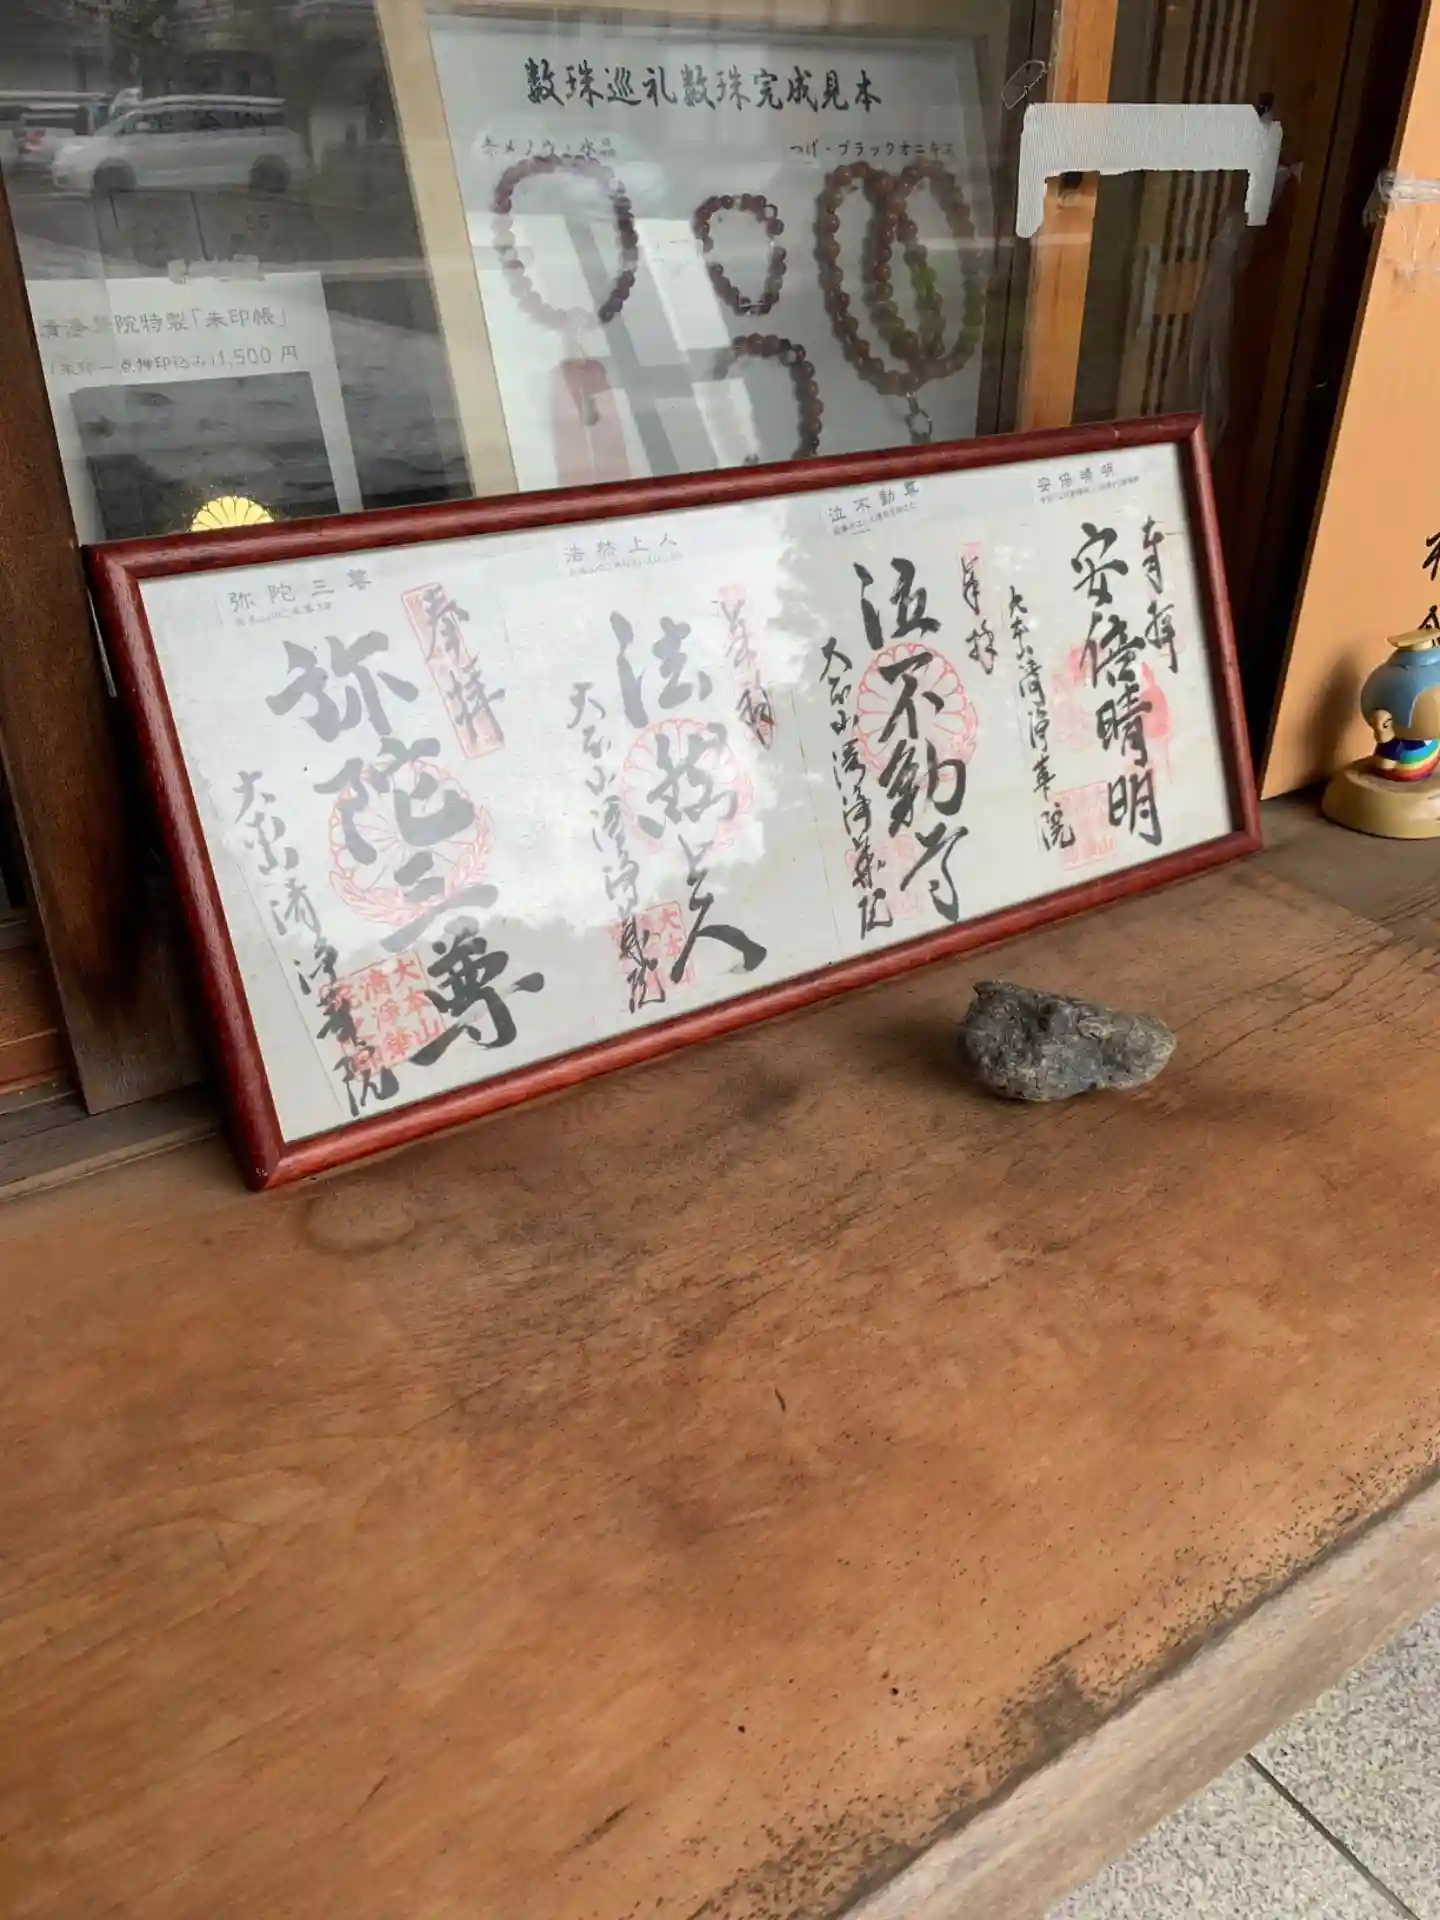 数珠巡礼数珠完成見本
赤メノウ・水晶
つげ・ブラックオニキス
清浄華院特製「朱印帳」
(朱印一点押印込み)1,500円
弥陀三尊
奉拝
弥陀三尊
大本山清浄華院
大本山
清浄華
院之印
法然上人
奉拝
法然上人
大本山清浄華院
泣不動尊
奉拝
泣不動尊
大本山清浄華院
安倍晴明
奉拝
安倍晴明
大本山清浄華院